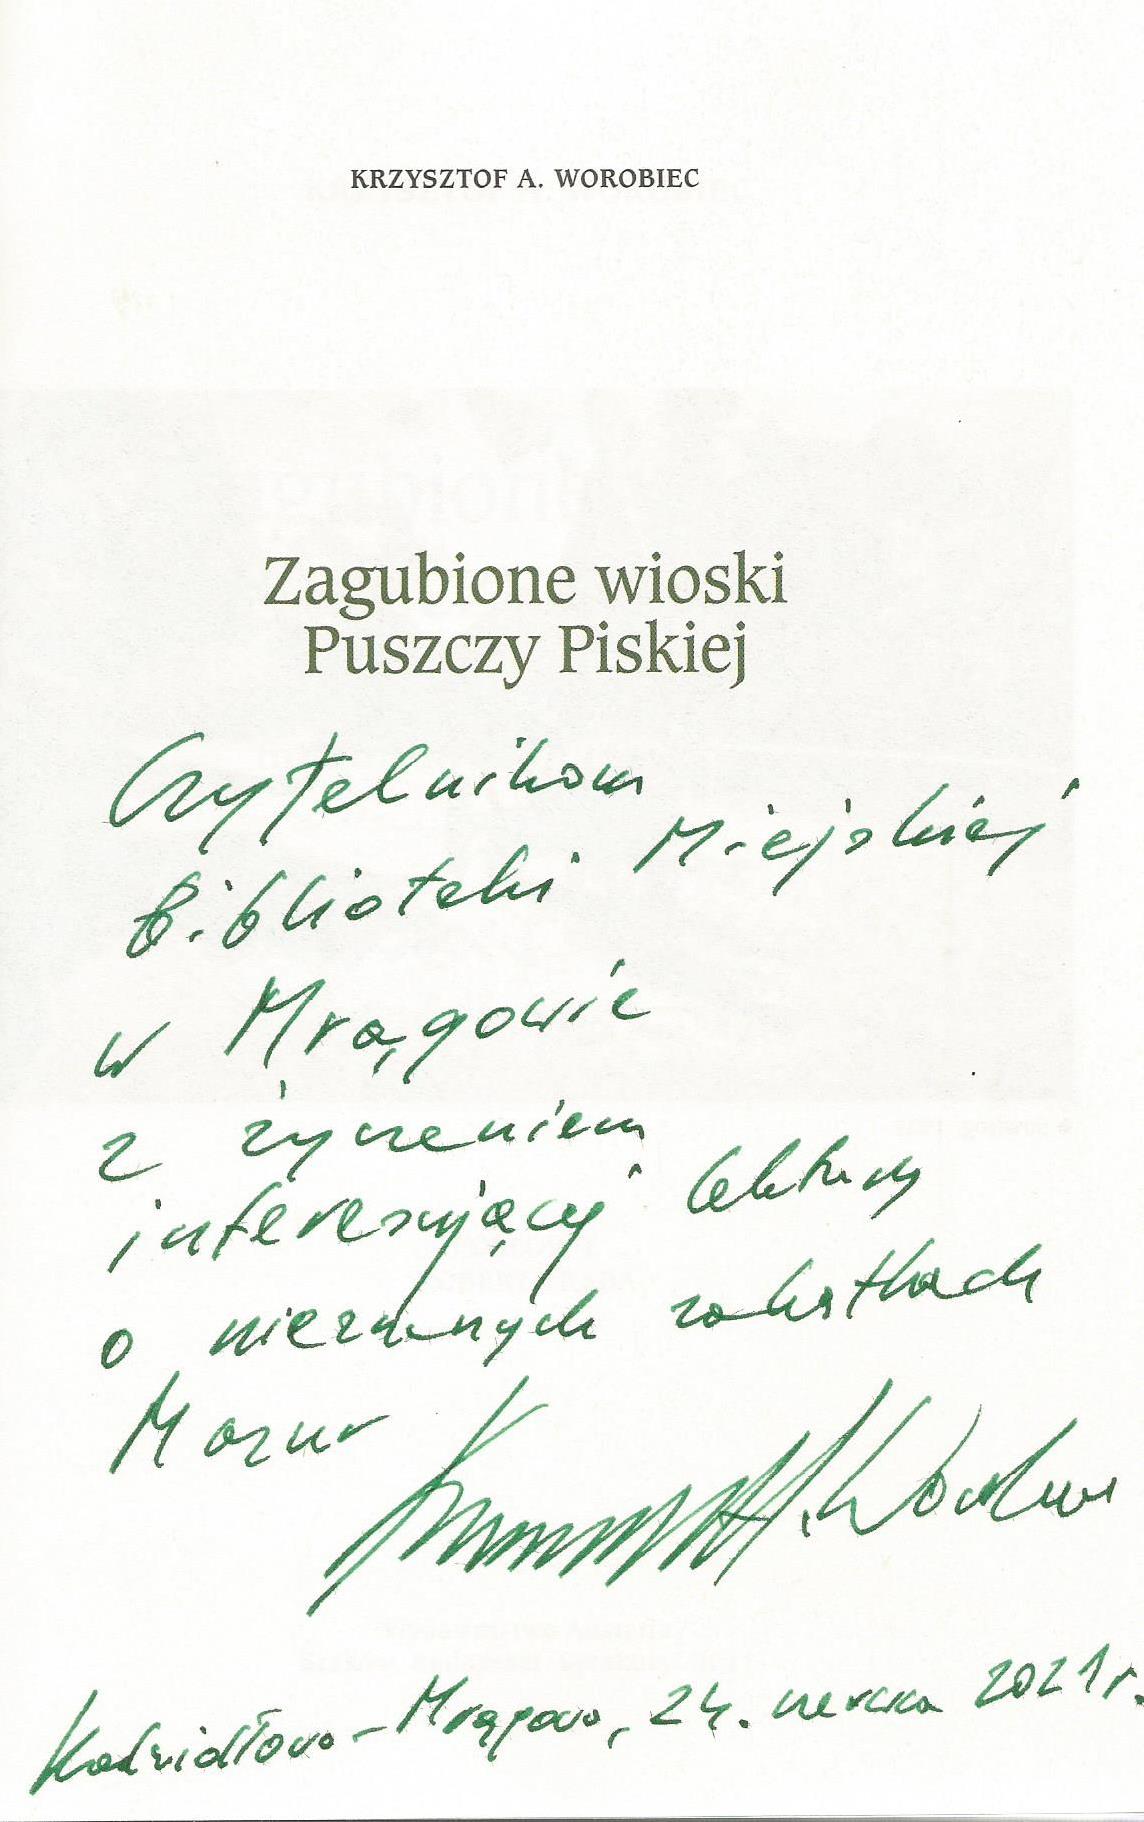 KRZYSZTOF A. WOROBIEC
Zagubione wioski
Puszczy Piskiej
Czytelnikom
Biblioteki Miejskiej
w Mrągowie
z życzeniem
interesującej lektury
o nieznanych zakątkach
Mazur
Krzysztof A. Worobiec
Kadzidłowo - Mrągowo, 24. czerwca 2021 r.